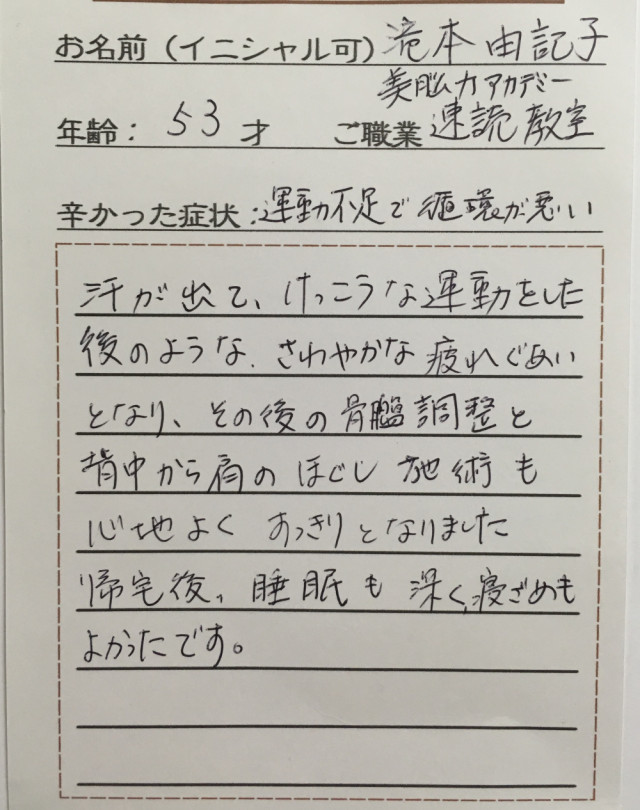 お名前（イニシャル可）滝本由記子
美脳力アカデミー
年齢： 53 才 ご職業 速読教室
辛かった症状：運動不足で循環が悪い
汗が出て、けっこうな運動をした
後のような、さわやかな疲れぐあい
となり、その後の骨盤調整と
背中から肩のほぐし施術も
心地よくすっきりとなりました
帰宅後、睡眠も深く、寝ざめも
よかったです。